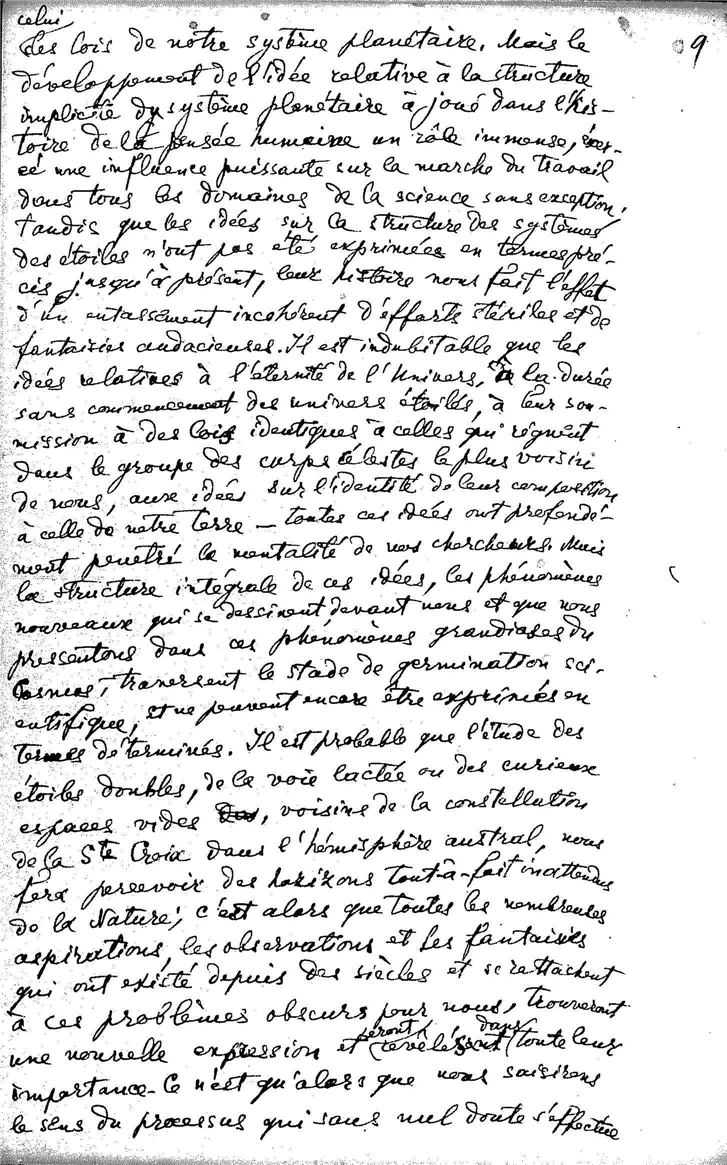 9
celui
des lois de notre système planétaire. Mais le
développement de l'idée relative à la structure
implicite du système planétaire à joué dans l'his-
toire de la pensée humaine un rôle immense, exer-
cé une influence puissante sur la marche du travail
dans tous les domaines de la science sans exception,
tandis que les idées sur la structure des systèmes
des étoiles n'ont pas été exprimées en termes pré-
cis jusqu'à présent, leur histoire nous fait l'effet
d'un entassement incohérent d'efforts stériles et de
fantaisies audacieuses. Il est indubitable que les
idées relatives à l'éternité de l'Univers, à la durée
sans commencement des univers étoilés, à leur sou-
mission à des lois identiques à celles qui règnent
dans le groupe des corps célestes le plus voisin
de nous, aux idées sur l'identité de leur composition
à celle de notre terre — toutes ces idées ont profondé-
ment penétré la mentalité de nos chercheurs. Mais
la structure intégrale de ces idées, les phénomènes
nouveaux qui se dessinent devant nous et que nous
pressentons dans ces phénomènes grandioses du
Cosmos, traversent le stade de germination sci-
entifique, et ne peuvent encore être exprimés en
termes déterminés. Il est probable que l'étude des
étoiles doubles, de la voie lactée ou des curieux
espaces vides, voisins de la constellation
de la Ste Croix dans l'hémisphère austral, nous
fera percevoir des horizons tout-à-fait inattendus
de la Nature; c'est alors que toutes les nombreuses
aspirations, les observations et les fantaisies
qui ont existé depuis des siècles et se rattachent
à ces problèmes obscurs pour nous, trouveront
une nouvelle expression et seront révélés dans toute leur
importance. Ce n'est qu'alors que nous saisirons
le sens du processus qui sans nul doute s'effectue